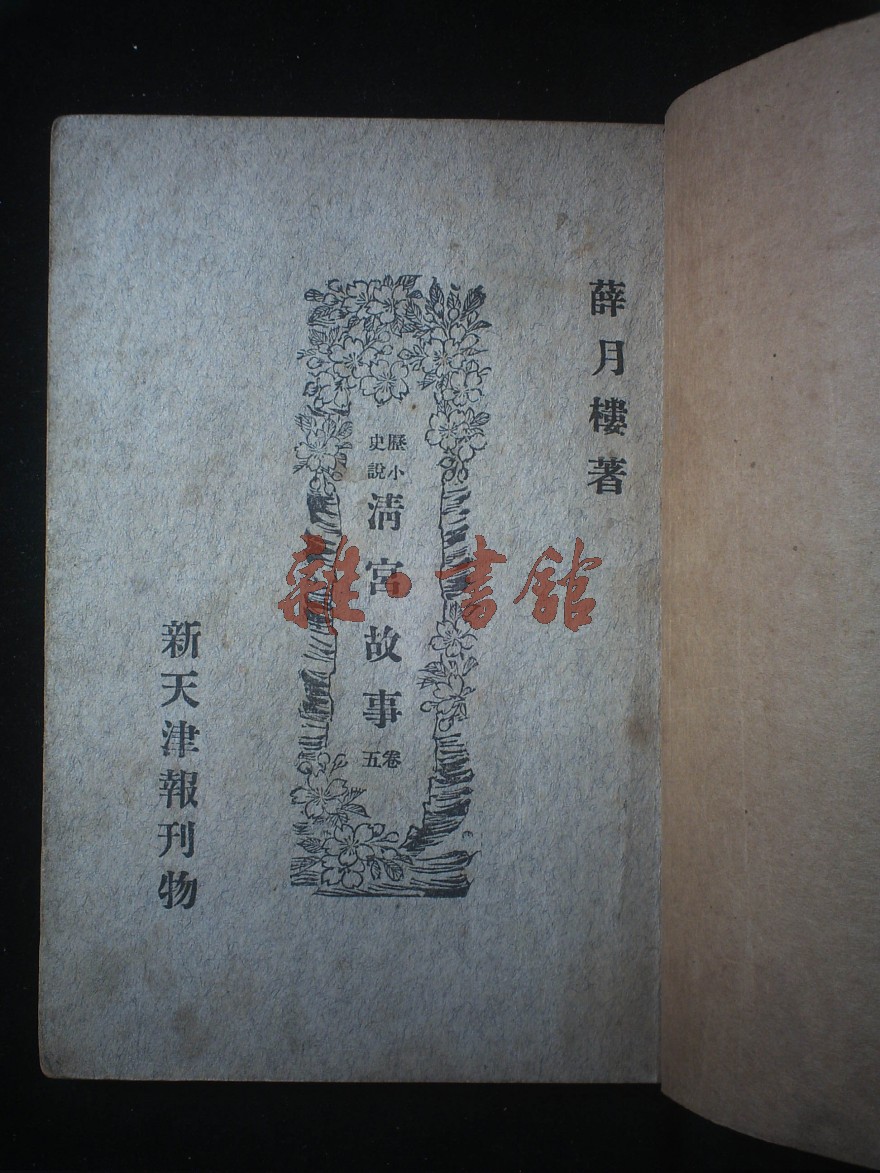 薛月樓著
歷史
小說
清宮故事
卷五
新天津報刊物
雜·書館